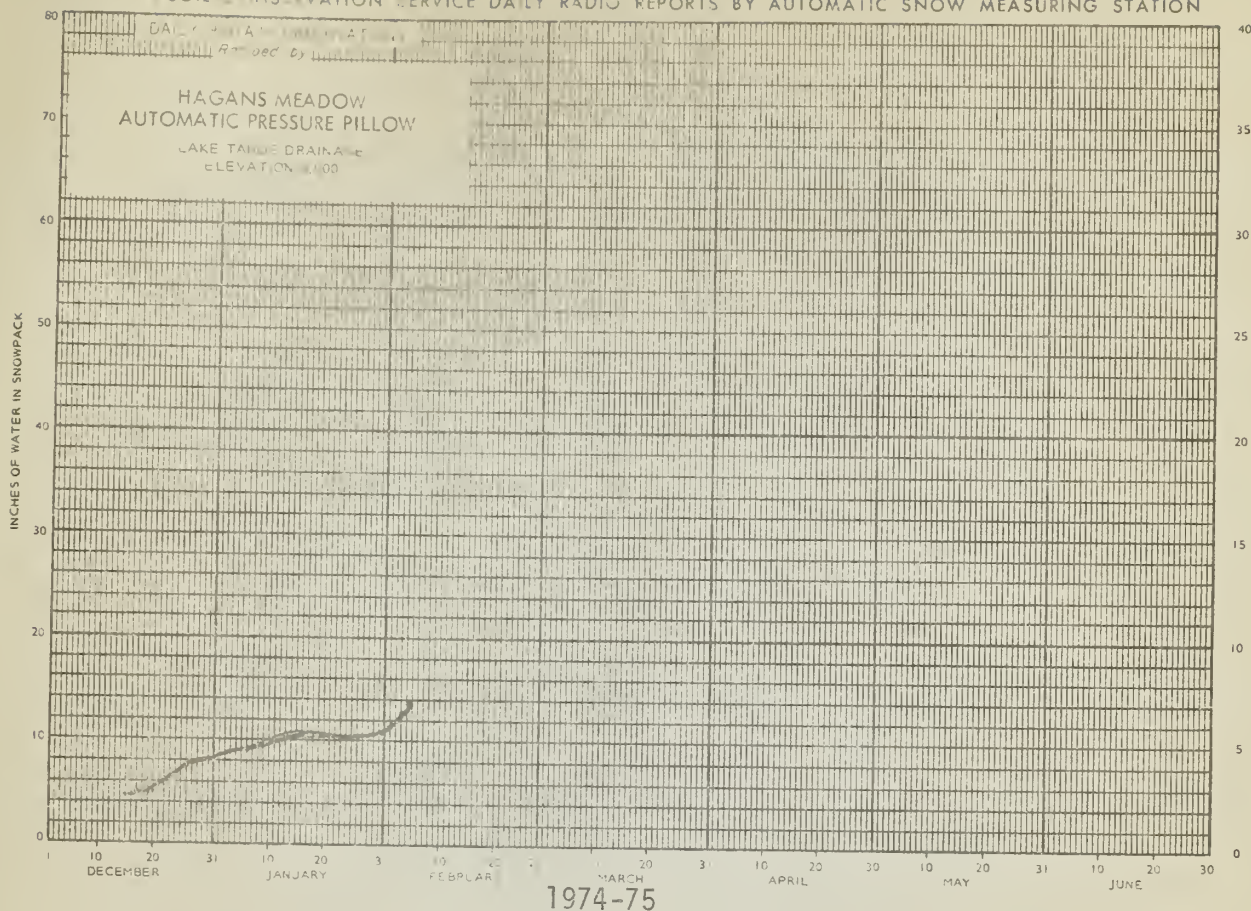 SERVICE DAILY RADIO REPORTS BY AUTOMATIC SNOW MEASURING STATION
HAGANS MEADOW
AUTOMATIC PRESSURE PILLOW
LAKE TAHOE DRAINAGE
ELEVATION
INCHES OF WATER IN SNOWPACK
80
70
60
50
40
30
20
10
0
40
35
30
25
20
15
10
5
0
1 10 20 31 10 20 3 10 20 20 31 10 20 30 10 20 31 10 20 30
DECEMBER JANUARY MARCH APRIL MAY JUNE
1974-75